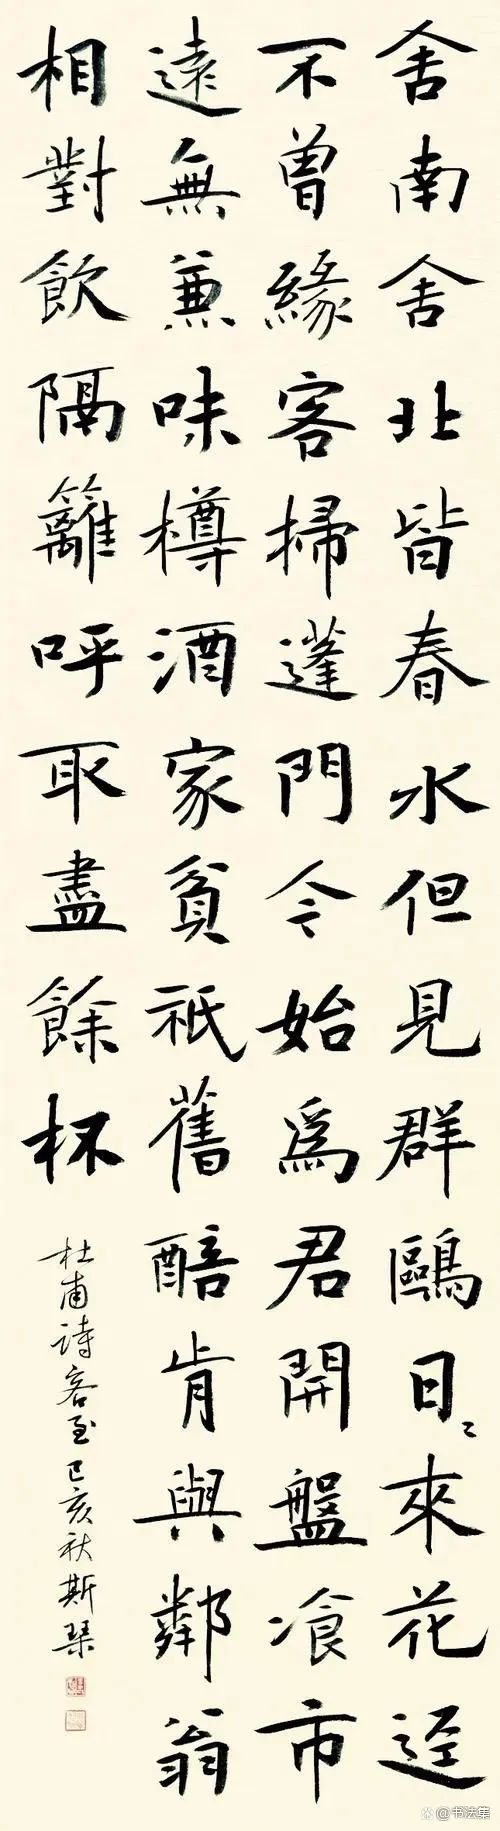 舍南舍北皆春水但見群鷗日〻來花逕
不曾緣客掃蓬門今始爲君開盤飡市
遠無兼味樽酒家貧祇舊醅肯與鄰翁
相對飲隔籬呼取盡餘杯
杜甫詩客至己亥秋斯琹
@书法集